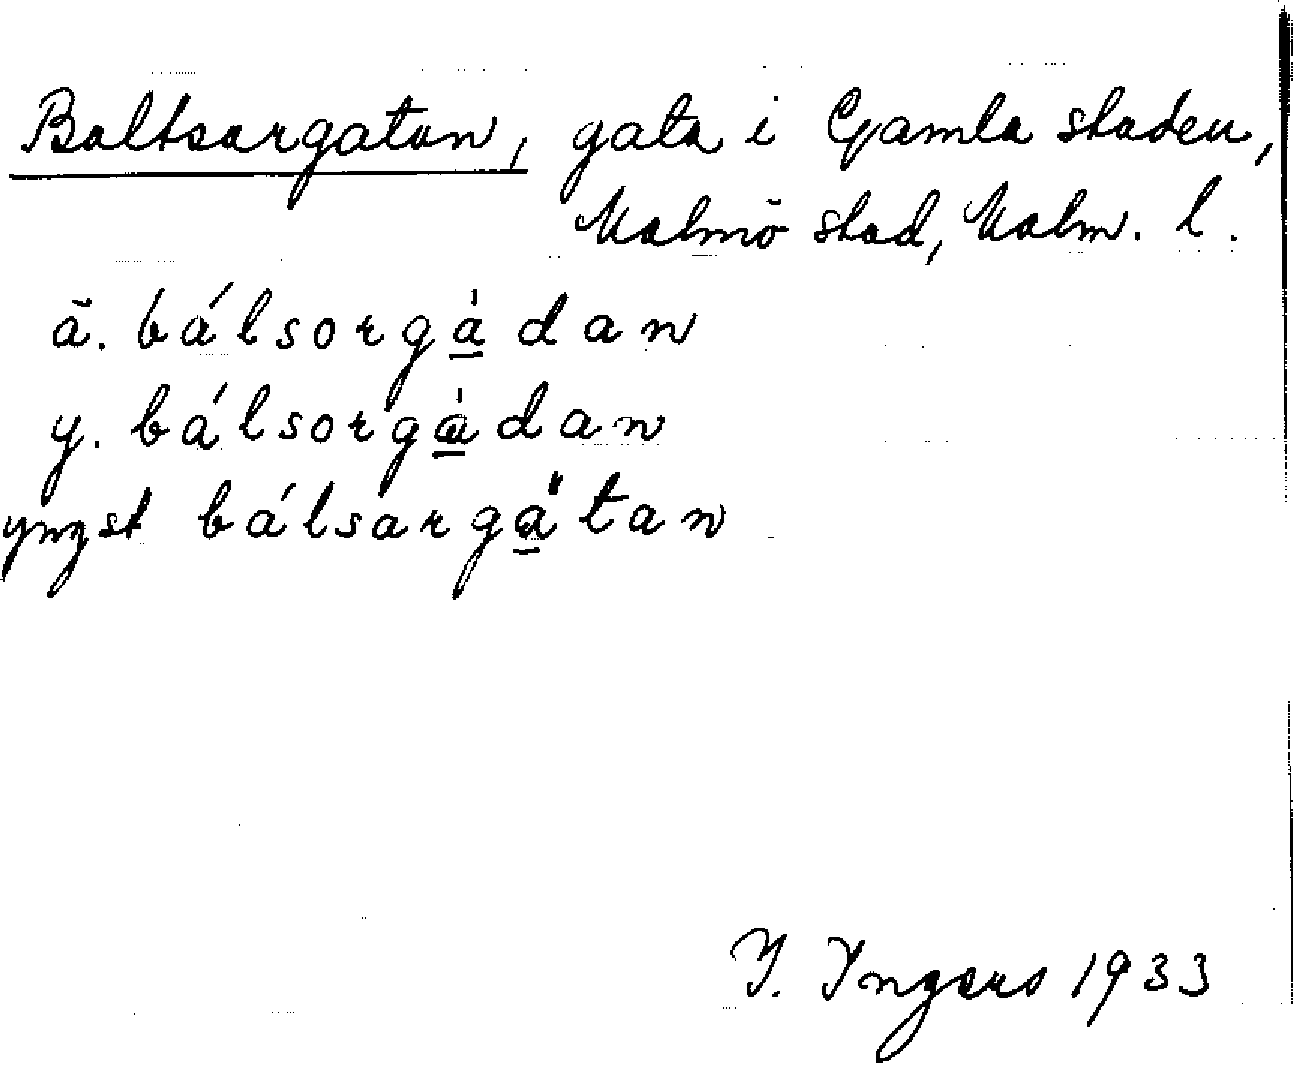 Baltsargatan, gata i Gamla staden,
Malmö stad, Malm. l.
ä. bálsorgà̲dan
y. bálsorgà̲dan
yngst bálsarga̲̎tan
I. Ingers 1933